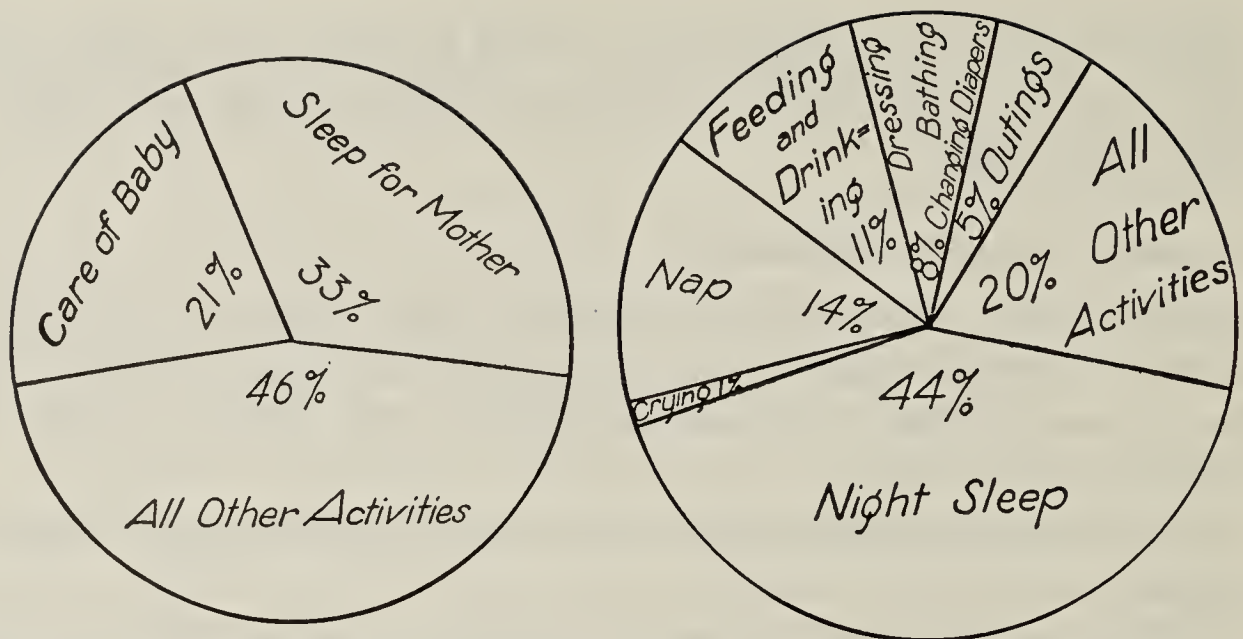 Care of Baby
21%
Sleep for Mother
33%
46%
All Other Activities
Feeding
and
Drink=
ing
11%
Dressing
Bathing
8% Changing Diapers
5% Outings
20%
All
Other
Activities
Nap
14%
Crying 1%
44%
Night Sleep